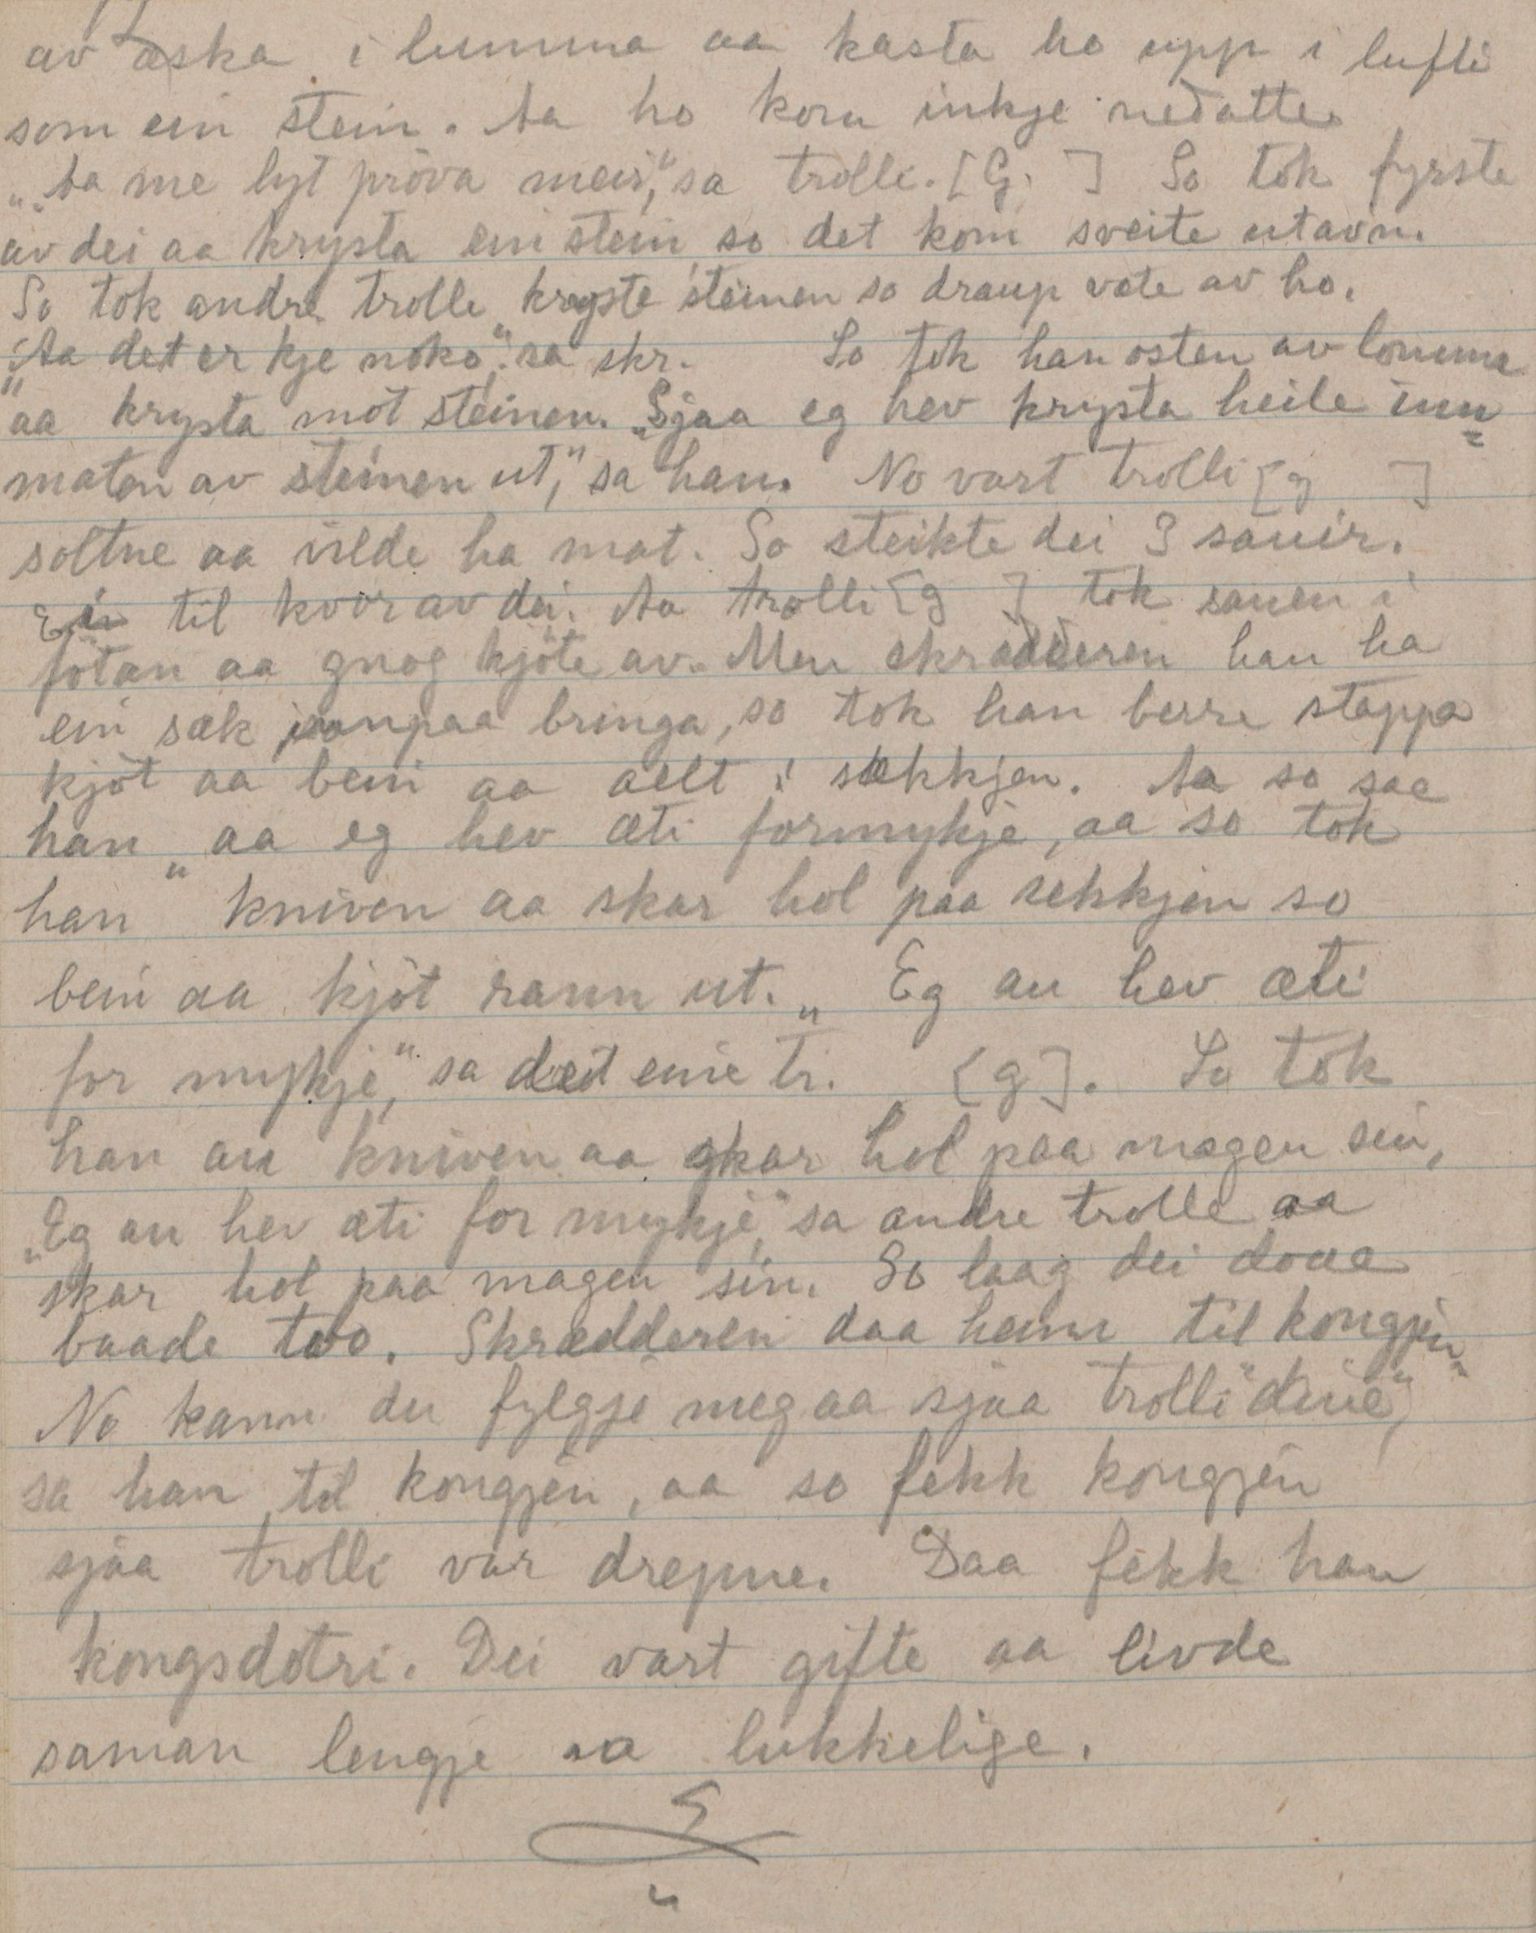 av æska i lumma aa kasta ho upp i lufti
som ein stein. Aa ho kom inkje nedatte.
„Aa me lyt pröva meir," sa trolle. [G. ] So tok fyrste
av dei aa krysta ein stein so det kom sveite utavn.
So tok andre trolle kryste steinen so draup væte av ho.
„Aa det er kje noko", sa skr. So tok han osten av lomma
aa krysta mot steinen. „Sjaa eg hev krysta heile inn=
maten av steinen ut," sa han. No vart trolli [g ]
soltne aa vilde ha mat. So steikte dei 3 sauir.
Ein til kvor av dei. Aa trolli [g ] tok sauen i
fötan aa gnog kjöte av. Men skrædderen han ha
ein sæk paa bringa, so tok han berre stappa
kjöt aa bein aa allt i sækkjen. Aa so sae
han „aa eg hev æti formykje, aa so tok
han kniven aa skar hol paa sekkjen so
bein aa kjöt rann ut. „Eg au hev æti
for mykje," sa det eine tr. [g]. So tok
han au kniven aa skar hol paa magen sin,
„Eg au hev æti for mykje," sa andre trolle aa
skar hol paa magen sin. So laag dei doue
baade two. Skrædderen daa heim til kongjin.
No kann du fylgje meg aa sjaa trolli dine",
sa han til kongjen, aa so fekk kongjen
sjaa trolli var drepne. Daa fekk han
kongsdotri. Dei vart gifte aa livde
saman lengje aa lukkelige.